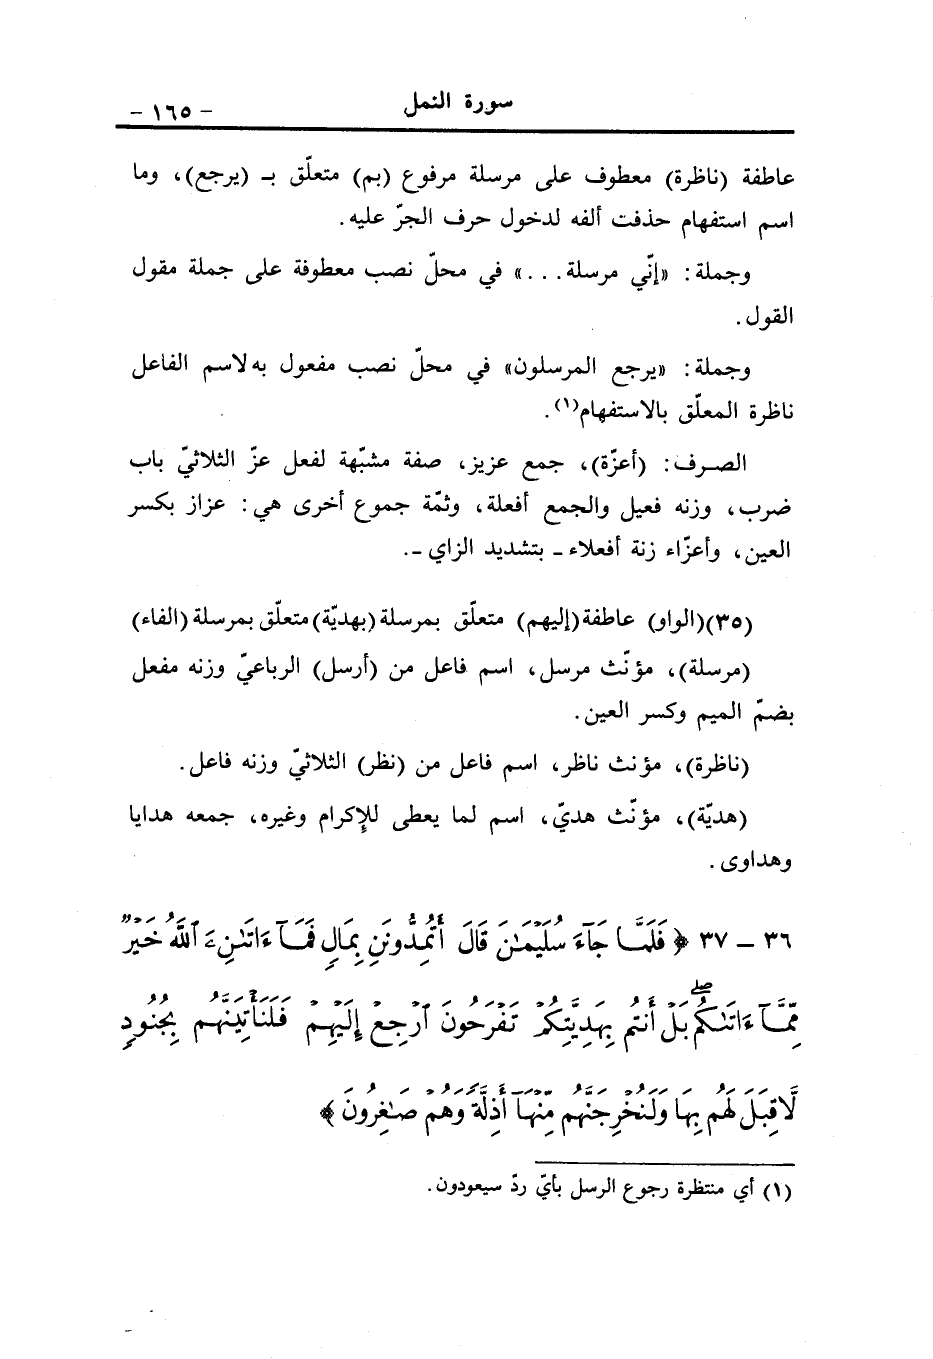 سورة النمل
- ١٦٥ -
عاطفة (ناظرة) معطوف على مرسلة مرفوع (بم) متعلّق بـ (يرجع)، وما
اسم استفهام حذفت ألفه لدخول حرف الجرّ عليه.
وجملة: «إنّي مرسلة...» في محلّ نصب معطوفة على جملة مقول
القول.
وجملة: «يرجع المرسلون» في محلّ نصب مفعول به لاسم الفاعل
ناظرة المعلّق بالاستفهام(١).
الصرف: (أعزّة)، جمع عزيز، صفة مشبّهة لفعل عزّ الثلاثيّ باب
ضرب، وزنه فعيل والجمع أفعلة، وثمّة جموع أخرى هي: عزاز بكسر
العين، وأعزّاء زنة أفعلاء ـ بتشديد الزاي ـ.
(٣٥)(الواو) عاطفة(إليهم) متعلّق بمرسلة(بهديّة)متعلّق بمرسلة(الفاء)
(مرسلة)، مؤنّث مرسل، اسم فاعل من (أرسل) الرباعيّ وزنه مفعل
بضمّ الميم وكسر العين.
(ناظرة)، مؤنث ناظر، اسم فاعل من (نظر) الثلاثيّ وزنه فاعل.
(هديّة)، مؤنّث هديّ، اسم لما يعطى للإكرام وغيره، جمعه هدايا
وهداوى.
٣٦ - ٣٧ ﴿ فَلَمَّا جَآءَ سُلَيْمَـٰنَ قَالَ أَتُمِدُّونَنِ بِمَالٍ فَمَآ ءَاتَىٰنِۦَ ٱللَّهُ خَيْرٌ
مِّمَّآ ءَاتَىٰكُمۖ بَلْ أَنتُم بِهَدِيَّتِكُمْ تَفْرَحُونَ ٱرْجِعْ إِلَيْهِمْ فَلَنَأْتِيَنَّهُم بِجُنُودٍ
لَّا قِبَلَ لَهُم بِهَا وَلَنُخْرِجَنَّهُم مِّنْهَآ أَذِلَّةً وَهُمْ صَـٰغِرُونَ ﴾
(١) أي منتظرة رجوع الرسل بأيّ ردّ سيعودون.